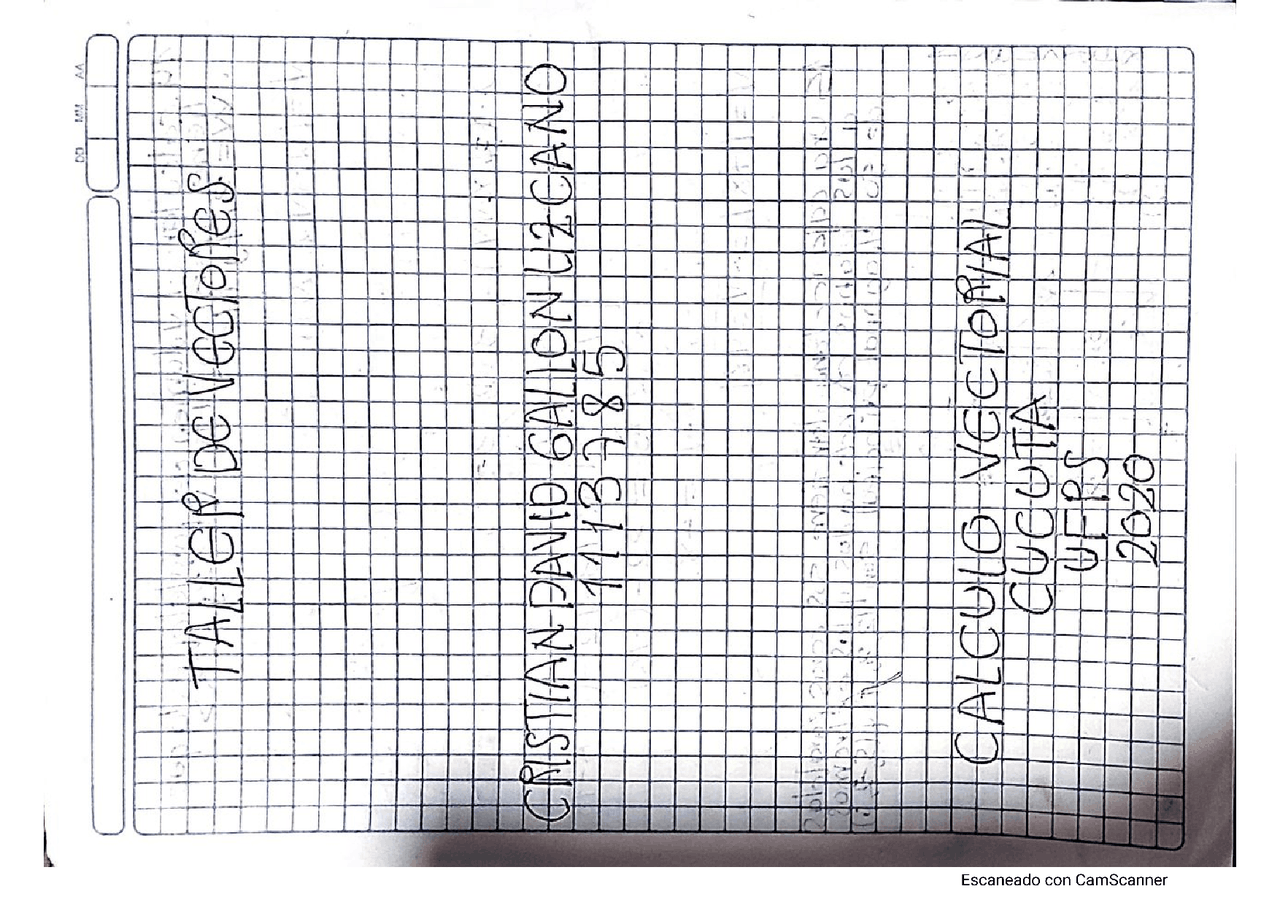 TALLER DE VECTORES
CRISTIAN DAVID GALLON LIZCANO
1113785
CALCULO VECTORIAL
CUCUTA
UFPS
2020
AA
MM
DD
Escaneado con CamScanner